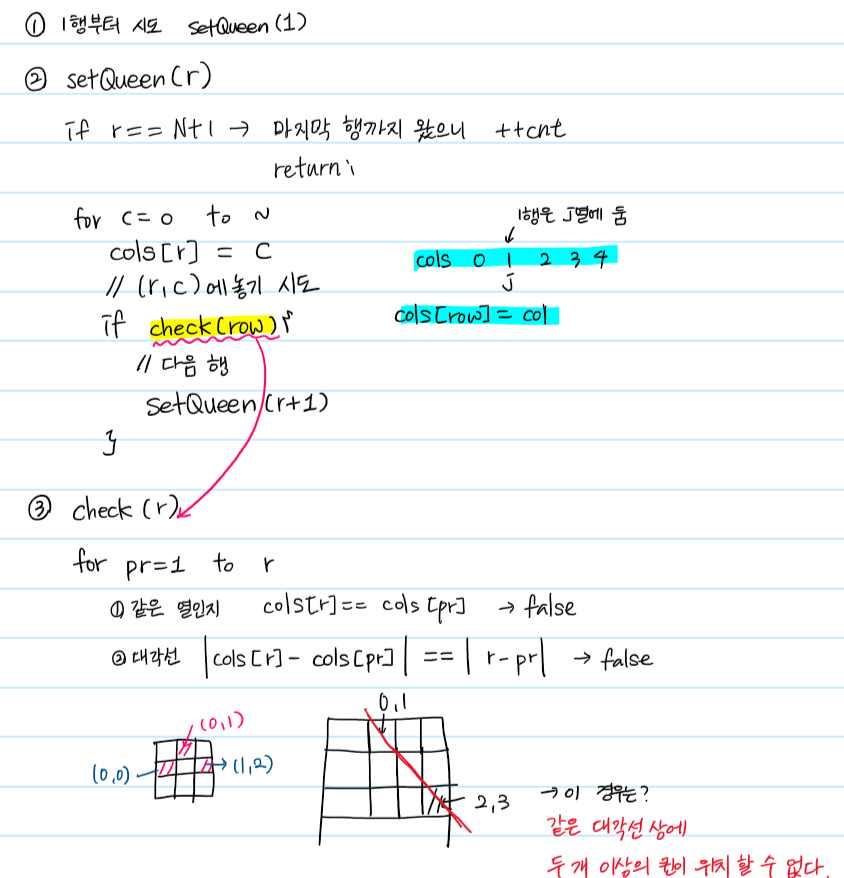 ① 1행부터 시도 setQueen(1)
② setQueen(r)
if r==N+1 → 마지막 행까지 왔으니 ++cnt
return;
for c=0 to N
1행은 J열에 둠
cols[r] = c
cols 0 1 2 3 4
J
// (r,c)에 놓기 시도
if check(row){
cols[row] = col
// 다음 행
setQueen(r+1)
}
③ check(r)
for pr=1 to r
① 같은 열인지 cols[r]== cols[pr] → false
② 대각선 |cols[r] - cols[pr]| == | r-pr| → false
(0,1)
0,1
(0,0)
(1,2)
2,3
→ 이 경우는?
같은 대각선 상에
두 개 이상의 퀸이 위치 할 수 없다.